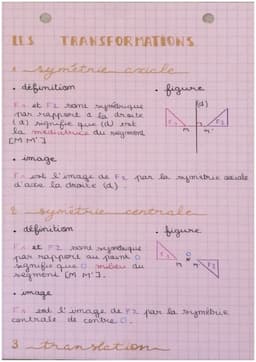 LES TRANSFORMATIONS
1 symétrie axiale
• définition
• figure
F1 et F2 sont symétrique
par rapport à la droite
(d) signifie que (d) est
la médiatrice du segment
[M M']
(d)
F1
F2
M
M'
• image
F1 est l'image de F2 par la symétrie axiale
d'axe la droite (d).
2 symétrie centrale
• définition
• figure
F1 et F2 sont symétrique
par rapport au point O
signifie que O milieu du
segment [M M'].
F1
O
M
M'
F2
• image
F1 est l'image de F2 par la symétrie
centrale de centre O.
3 translation